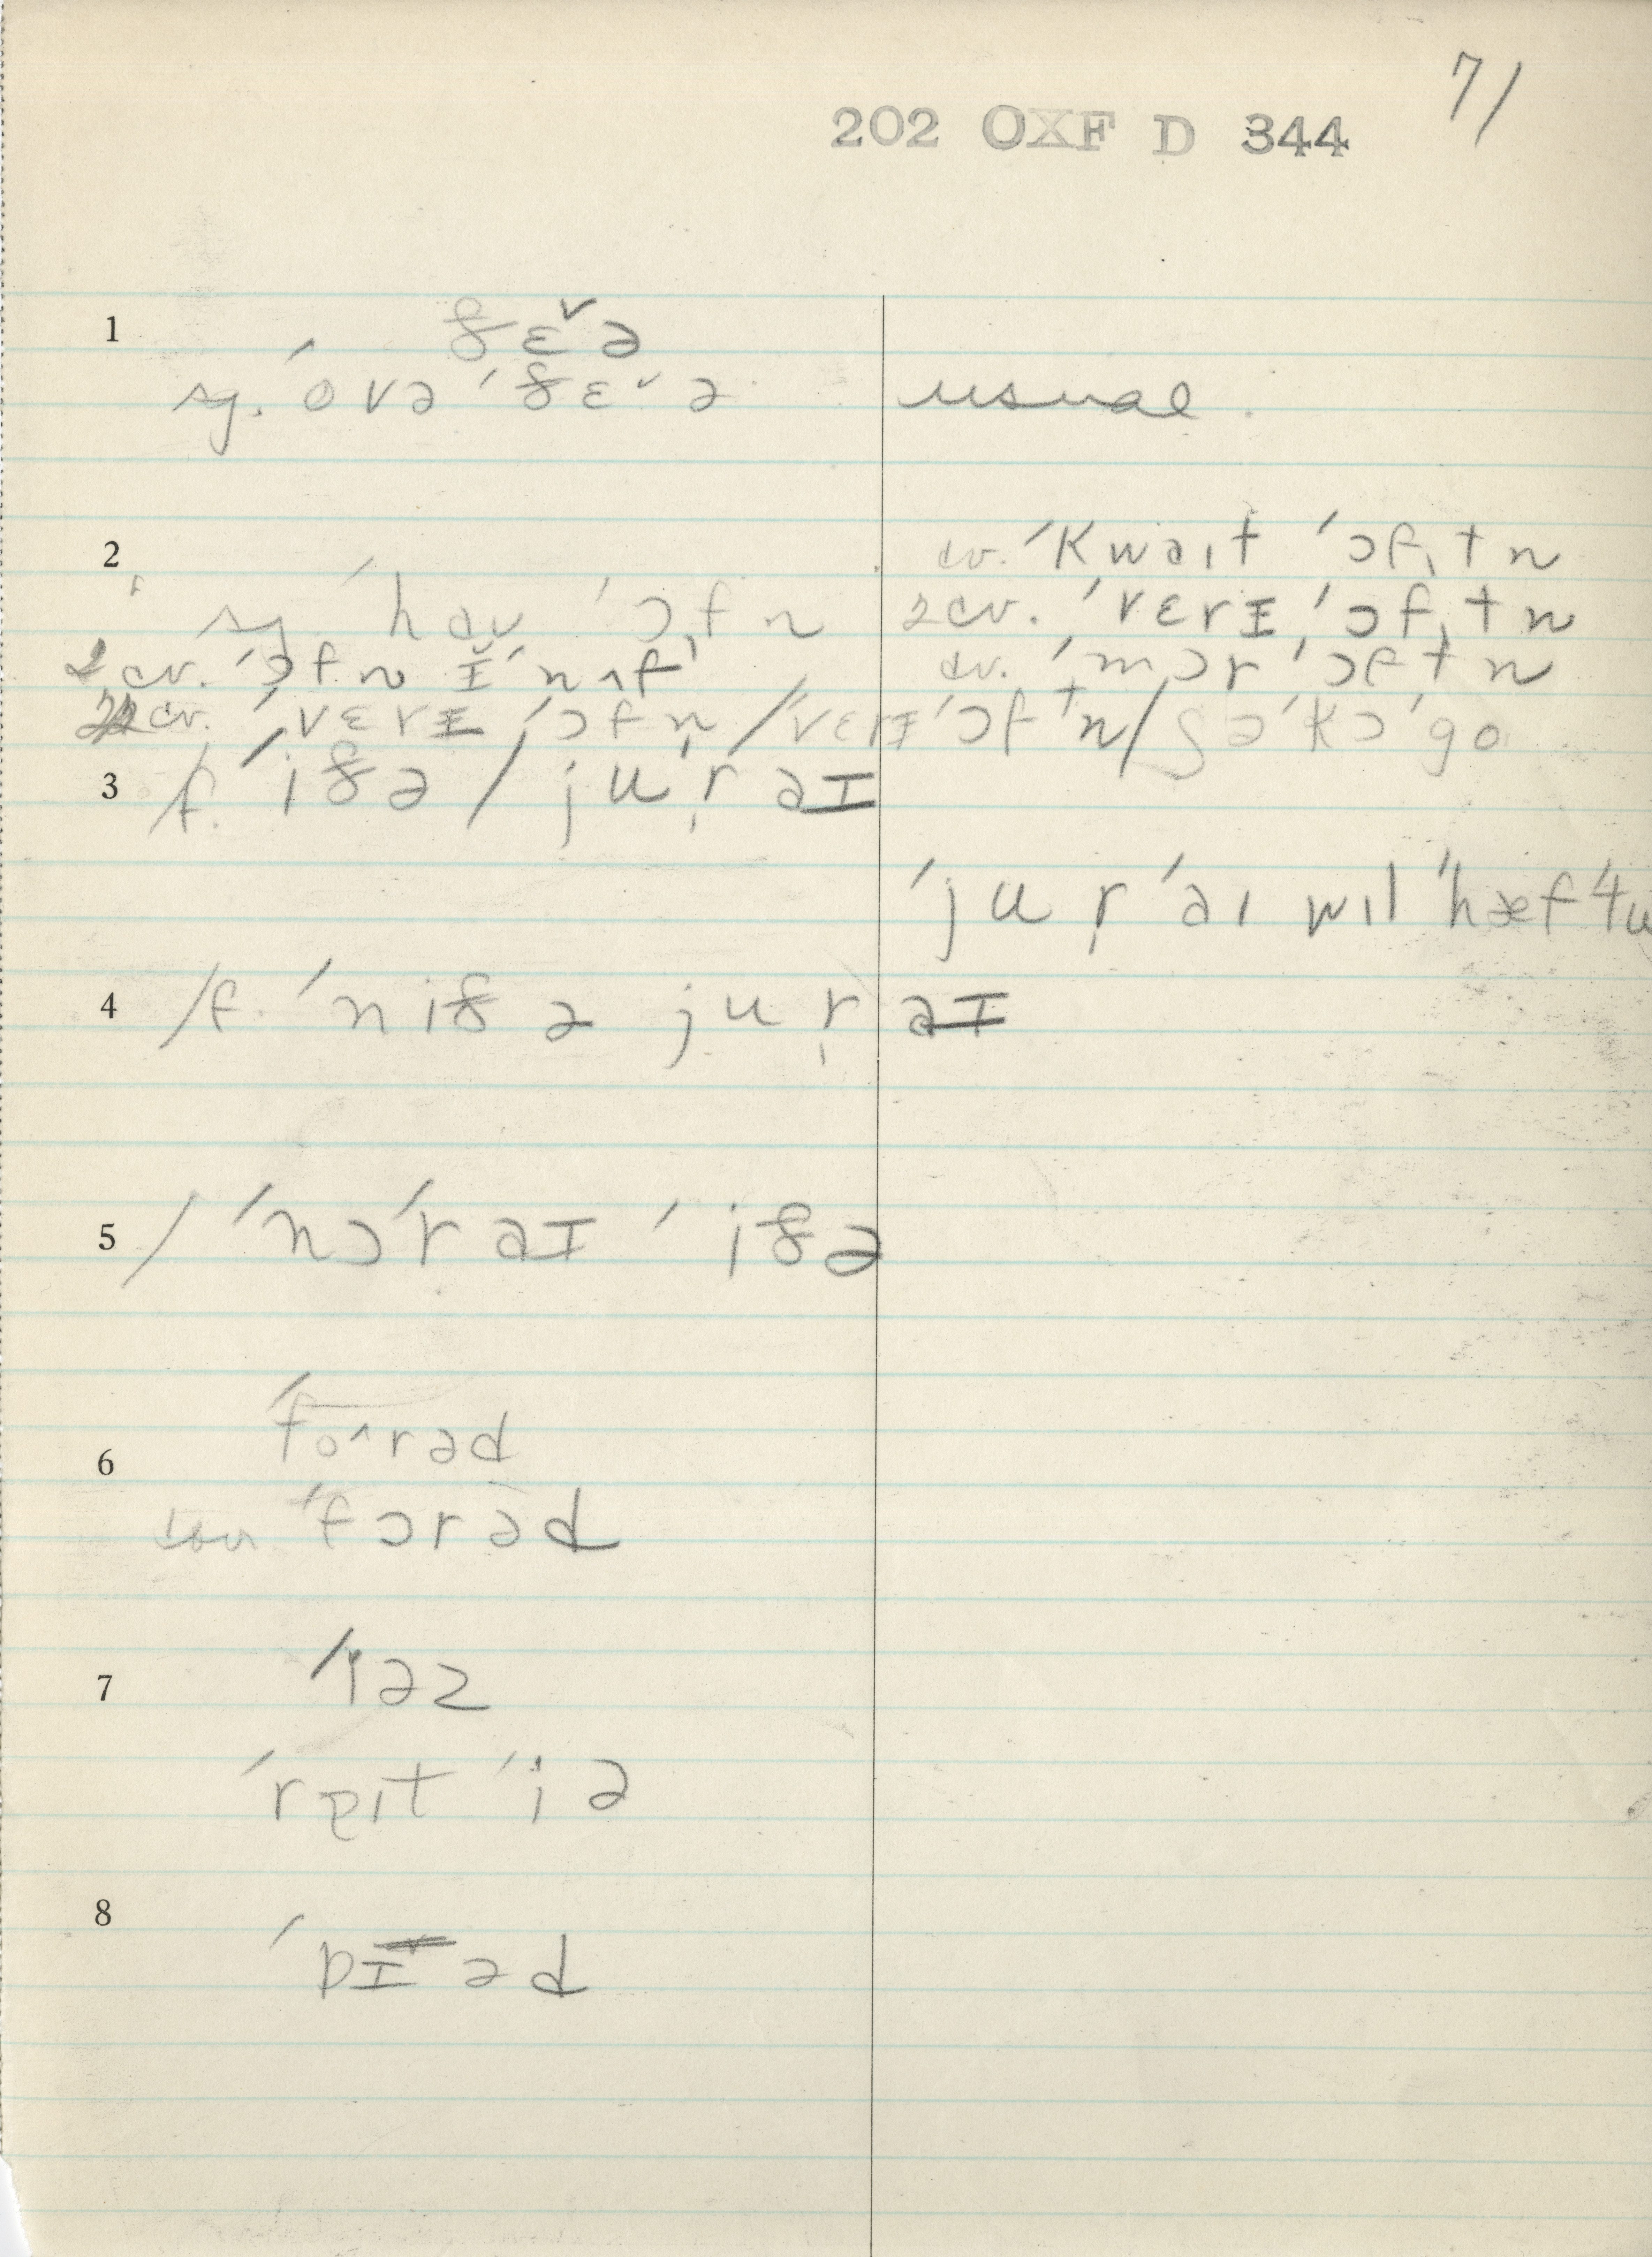 7/
202 OXF D 344
1 ðɛˇə
sg. ˈovə ˈðɛˇə usual.
2 cv. ˈkwaıt ˈɔftn
sg. ˈhaʊ ˈɔfn 2 cv. ˈvɛrɪ ˈɔftn
2 cv. ˈɔfn ɪ̆ˈnʌf cv. ˈmɔr ˈɔftn
cv. ˈvɛrɪ ˈɔfn / ˈvɛrɪ ˈɔftn / ʃəˈkɔˈgo
3 /f. ˈiðə / ju ˈr̩ aɪ
ˈju r̩ ˈaı wıl ˈhæf ˈtu
4 /f. ˈniðə ju r̩ aɪ
5 / ˈnɔˈr aɪ ˈiðə
6 ˈfo^rəd
ˈfɔrəd
7 ˈiəz
ˈreıt ˈiə
8 ˈbɪəd